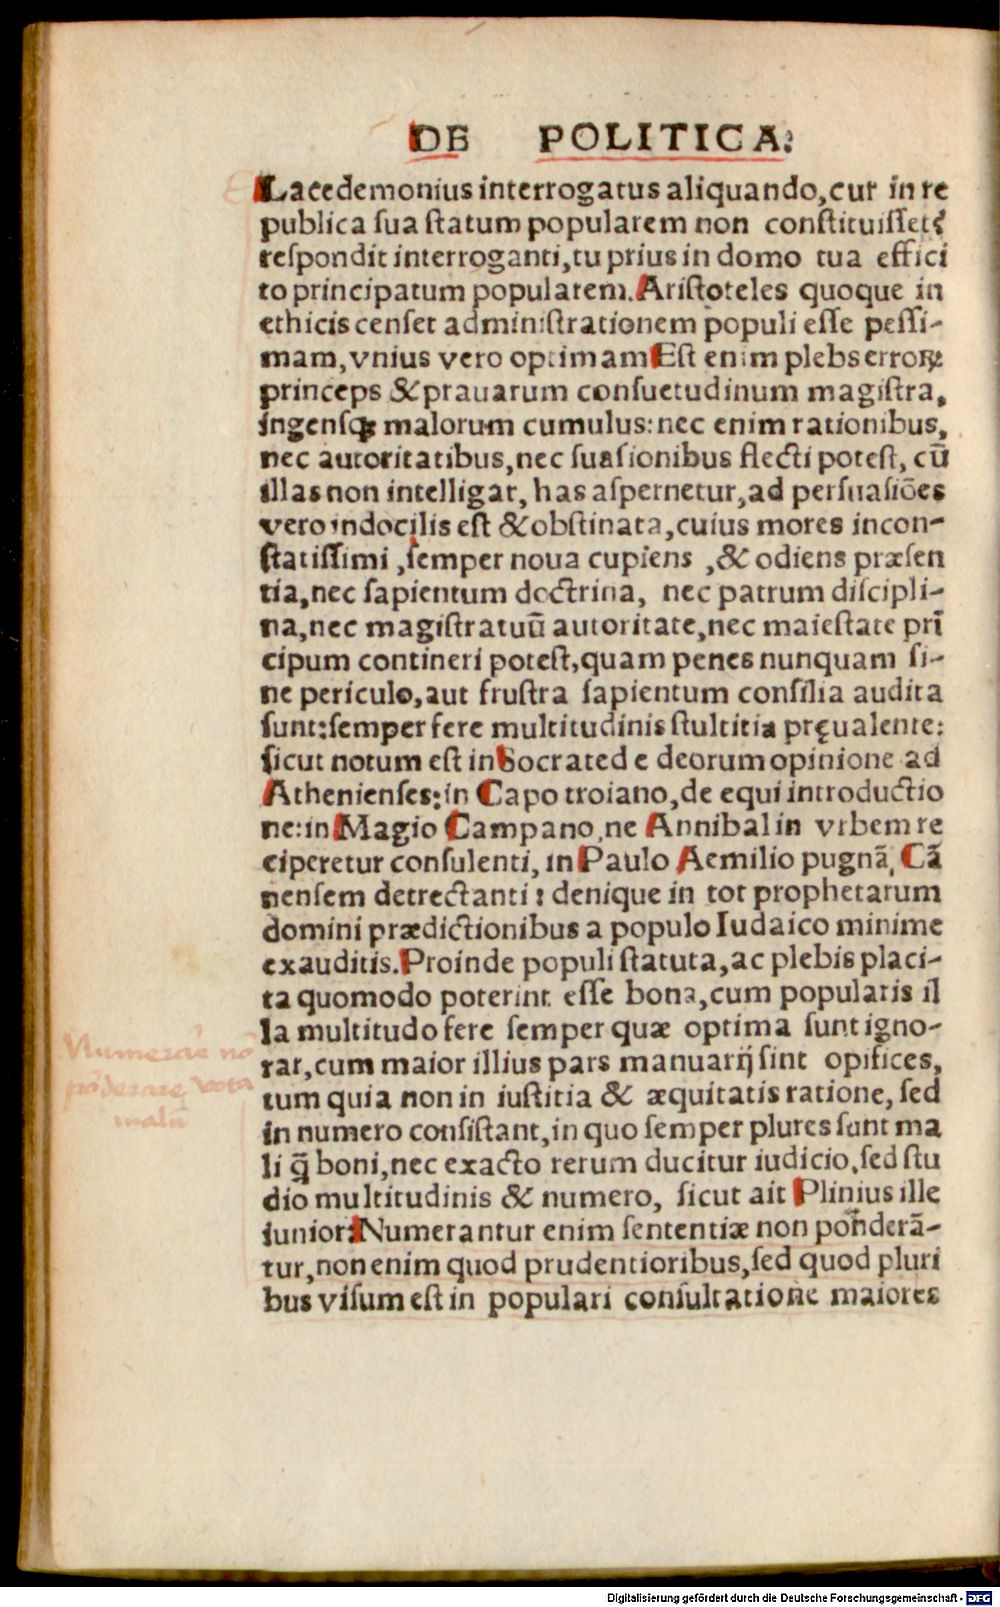 DE POLITICA.
Lacedemonius interrogatus aliquando, cur in re
publica sua statum popularem non constituisset?
respondit interroganti, tu prius in domo tua effici
to principatum popularem. Aristoteles quoque in
ethicis censet administrationem populi esse pessi-
mam, vnius vero optimam Est enim plebs erroꝝ
princeps & prauarum consuetudinum magistra,
ingensqꝫ malorum cumulus: nec enim rationibus,
nec autoritatibus, nec suasionibus flecti potest, cũ
illas non intelligat, has aspernetur, ad persuasiões
vero indocilis est & obstinata, cuius mores incon-
statissimi, semper noua cupiens, & odiens præsen
tia, nec sapientum doctrina, nec patrum discipli-
na, nec magistratuũ autoritate, nec maiestate prĩ
cipum contineri potest, quam penes nunquam si-
ne periculo, aut frustra sapientum consilia audita
sunt: semper fere multitudinis stultitia pręualente:
sicut notum est in Socrate de deorum opinione ad
Athenienses: in Capo troiano, de equi introductio
ne: in Magio Campano, ne Annibal in vrbem re
ciperetur consulenti, in Paulo Aemilio pugnã, Cã
nensem detrectanti: denique in tot prophetarum
domini prædictionibus a populo Iudaico minime
exauditis. Proinde populi statuta, ac plebis placi-
ta quomodo poterint esse bona, cum popularis il
la multitudo fere semper quæ optima sunt igno-
rat, cum maior illius pars manuarij sint opifices,
tum quia non in iustitia & æquitatis ratione, sed
in numero consistant, in quo semper plures sunt ma
li q̃ boni, nec exacto rerum ducitur iudicio, sed stu
dio multitudinis & numero, sicut ait Plinius ille
iunior: Numerantur enim sententiæ non ponderã-
tur, non enim quod prudentioribus, sed quod pluri
bus visum est in populari consultatione maiores
Numerare nõ
põderare vota
malũ
Digitalisierung gefördert durch die Deutsche Forschungsgemeinschaft - DFG